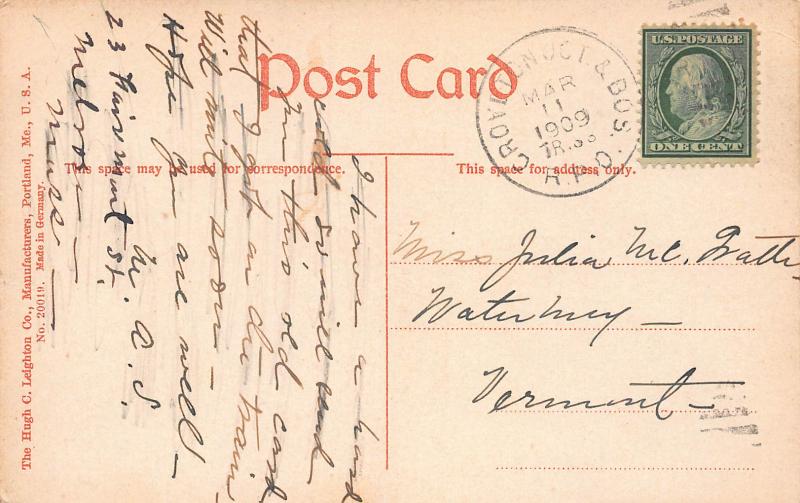 Post Card
This space may be used for correspondence.
This space for address only.
U.S. POSTAGE
ONE CENT
MAR
11
1909
TR.
R.P.O.
& BOS.
Miss Julia Mc.
Vermont
I have a hard
cold so will send
you this old card
that I got on the train
Will write soon —
Hope you are well —
M. A. S.
23 Fairmount St.
Melrose
Mass
The Hugh C. Leighton Co., Manufacturers, Portland, Me., U. S. A.
No. 20019. Made in Germany.